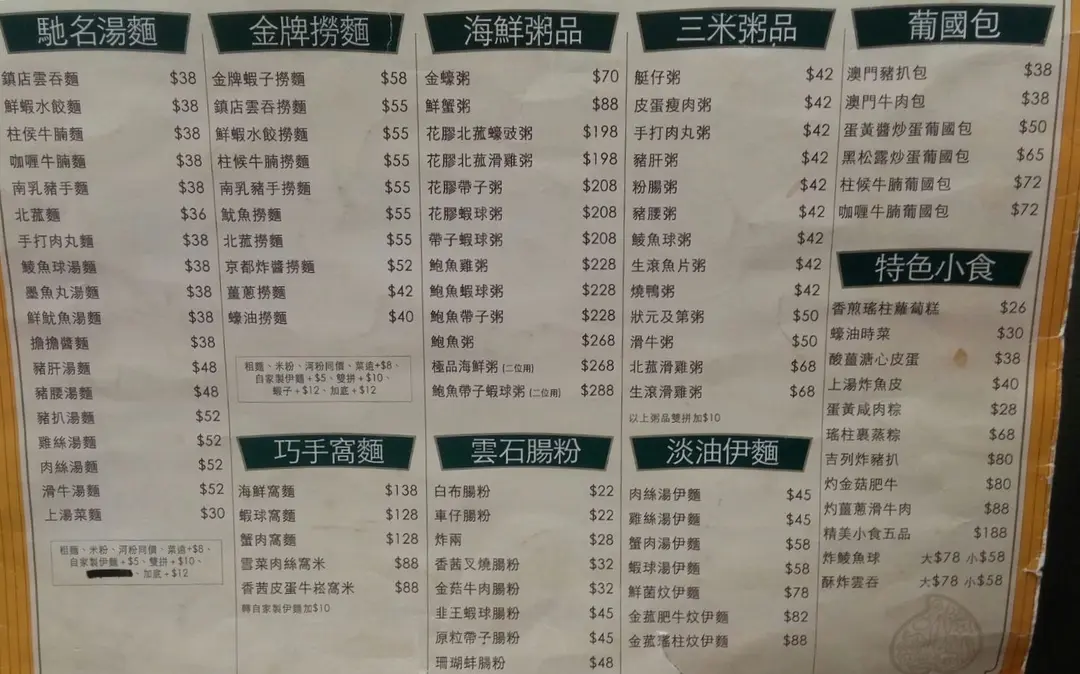 馳名湯麵
鎮店雲吞麵 $38
鮮蝦水餃麵 $38
柱侯牛腩麵 $38
咖喱牛腩麵 $38
南乳豬手麵 $38
北菰麵 $36
手打肉丸麵 $38
鯪魚球湯麵 $38
墨魚丸湯麵 $38
鮮魷魚湯麵 $38
擔擔醬麵 $38
豬肝湯麵 $48
豬腰湯麵 $48
豬扒湯麵 $52
雞絲湯麵 $52
肉絲湯麵 $52
滑牛湯麵 $52
上湯菜麵 $30
粗麵、米粉、河粉同價、菜遠+$8、
自家製伊麵+$5、雙拼+$10、
、加底+$12
金牌撈麵
金牌蝦子撈麵 $58
鎮店雲吞撈麵 $55
鮮蝦水餃撈麵 $55
柱候牛腩撈麵 $55
南乳豬手撈麵 $55
魷魚撈麵 $55
北菰撈麵 $55
京都炸醬撈麵 $52
薑蔥撈麵 $42
蠔油撈麵 $40
粗麵、米粉、河粉同價、菜遠+$8、
自家製伊麵+$5、雙拼+$10、
蝦子+$12、加底+$12
巧手窩麵
海鮮窩麵 $138
蝦球窩麵 $128
蟹肉窩麵 $128
雪菜肉絲窩米 $88
香茜皮蛋牛崧窩米 $88
轉自家製伊麵加$10
海鮮粥品
金蠔粥 $70
鮮蟹粥 $88
花膠北菰蠔豉粥 $198
花膠北菰滑雞粥 $198
花膠帶子粥 $208
花膠蝦球粥 $208
帶子蝦球粥 $208
鮑魚雞粥 $228
鮑魚蝦球粥 $228
鮑魚帶子粥 $228
鮑魚粥 $268
極品海鮮粥(二位用) $268
鮑魚帶子蝦球粥(二位用) $288
雲石腸粉
白布腸粉 $22
車仔腸粉 $22
炸兩 $28
香茜叉燒腸粉 $32
金菇牛肉腸粉 $32
韭王蝦球腸粉 $45
原粒帶子腸粉 $45
珊瑚蚌腸粉 $48
三米粥品
艇仔粥 $42
皮蛋瘦肉粥 $42
手打肉丸粥 $42
豬肝粥 $42
粉腸粥 $42
豬腰粥 $42
鯪魚球粥 $42
生滾魚片粥 $42
燒鴨粥 $42
狀元及第粥 $50
滑牛粥 $50
北菰滑雞粥 $68
生滾滑雞粥 $68
以上粥品雙拼加$10
淡油伊麵
肉絲湯伊麵 $45
雞絲湯伊麵 $45
蟹肉湯伊麵 $58
蝦球湯伊麵 $58
鮮菌炆伊麵 $78
金菰肥牛炆伊麵 $82
金菰瑤柱炆伊麵 $88
葡國包
澳門豬扒包 $38
澳門牛肉包 $38
蛋黃醬炒蛋葡國包 $50
黑松露炒蛋葡國包 $65
柱候牛腩葡國包 $72
咖喱牛腩葡國包 $72
特色小食
香煎瑤柱蘿蔔糕 $26
蠔油時菜 $30
酸薑溏心皮蛋 $38
上湯炸魚皮 $40
蛋黃咸肉粽 $28
瑤柱裹蒸粽 $68
吉列炸豬扒 $80
灼金菇肥牛 $80
灼薑蔥滑牛肉 $88
精美小食五品 $188
炸鯪魚球 大$78 小$58
酥炸雲吞 大$78 小$58